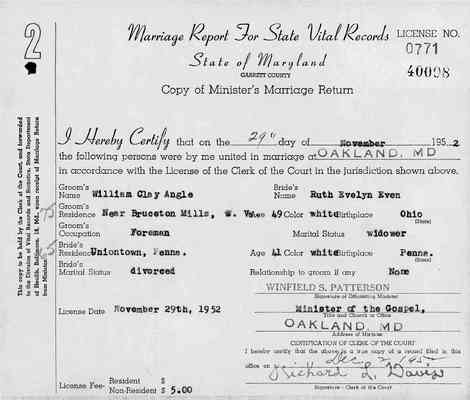 2
Marriage Report For State Vital Records
LICENSE NO.
0771
40098
State of Maryland
GARRETT COUNTY
Copy of Minister's Marriage Return
I Hereby Certify that on the 29" day of November 1952
the following persons were by me united in marriage at OAKLAND, MD
in accordance with the License of the Clerk of the Court in the jurisdiction shown above.
Groom's Name William Clay Angle Bride's Name Ruth Evelyn Even
Groom's Residence Near Bruceton Mills, W. Va. Age 49 Color white Birthplace Ohio
(State)
Groom's Occupation Foreman Marital Status widower
Bride's Residence Uniontown, Penna. Age 41 Color white Birthplace Penna.
(State)
Bride's Marital Status divorced Relationship to groom if any None
WINFIELD S. PATTERSON
Signature of Officiating Minister
License Date November 29th, 1952 Minister of the Gospel,
Title and Church or Office
OAKLAND, MD
Address of Minister
CERTIFICATION OF CLERK OF THE COURT
I hereby certify that the above is a true copy of a record filed in this
office on Dec 2 1952
Richard L. Davis
Signature - Clerk of the Court
License Fee- Resident $
Non-Resident $ 5.00
This copy to be held by the Clerk of the Court, and forwarded
to the Division of Vital Records and Statistics, State Department
of Health, Baltimore, 18, Md., upon receipt of Marriage Return
from Minister